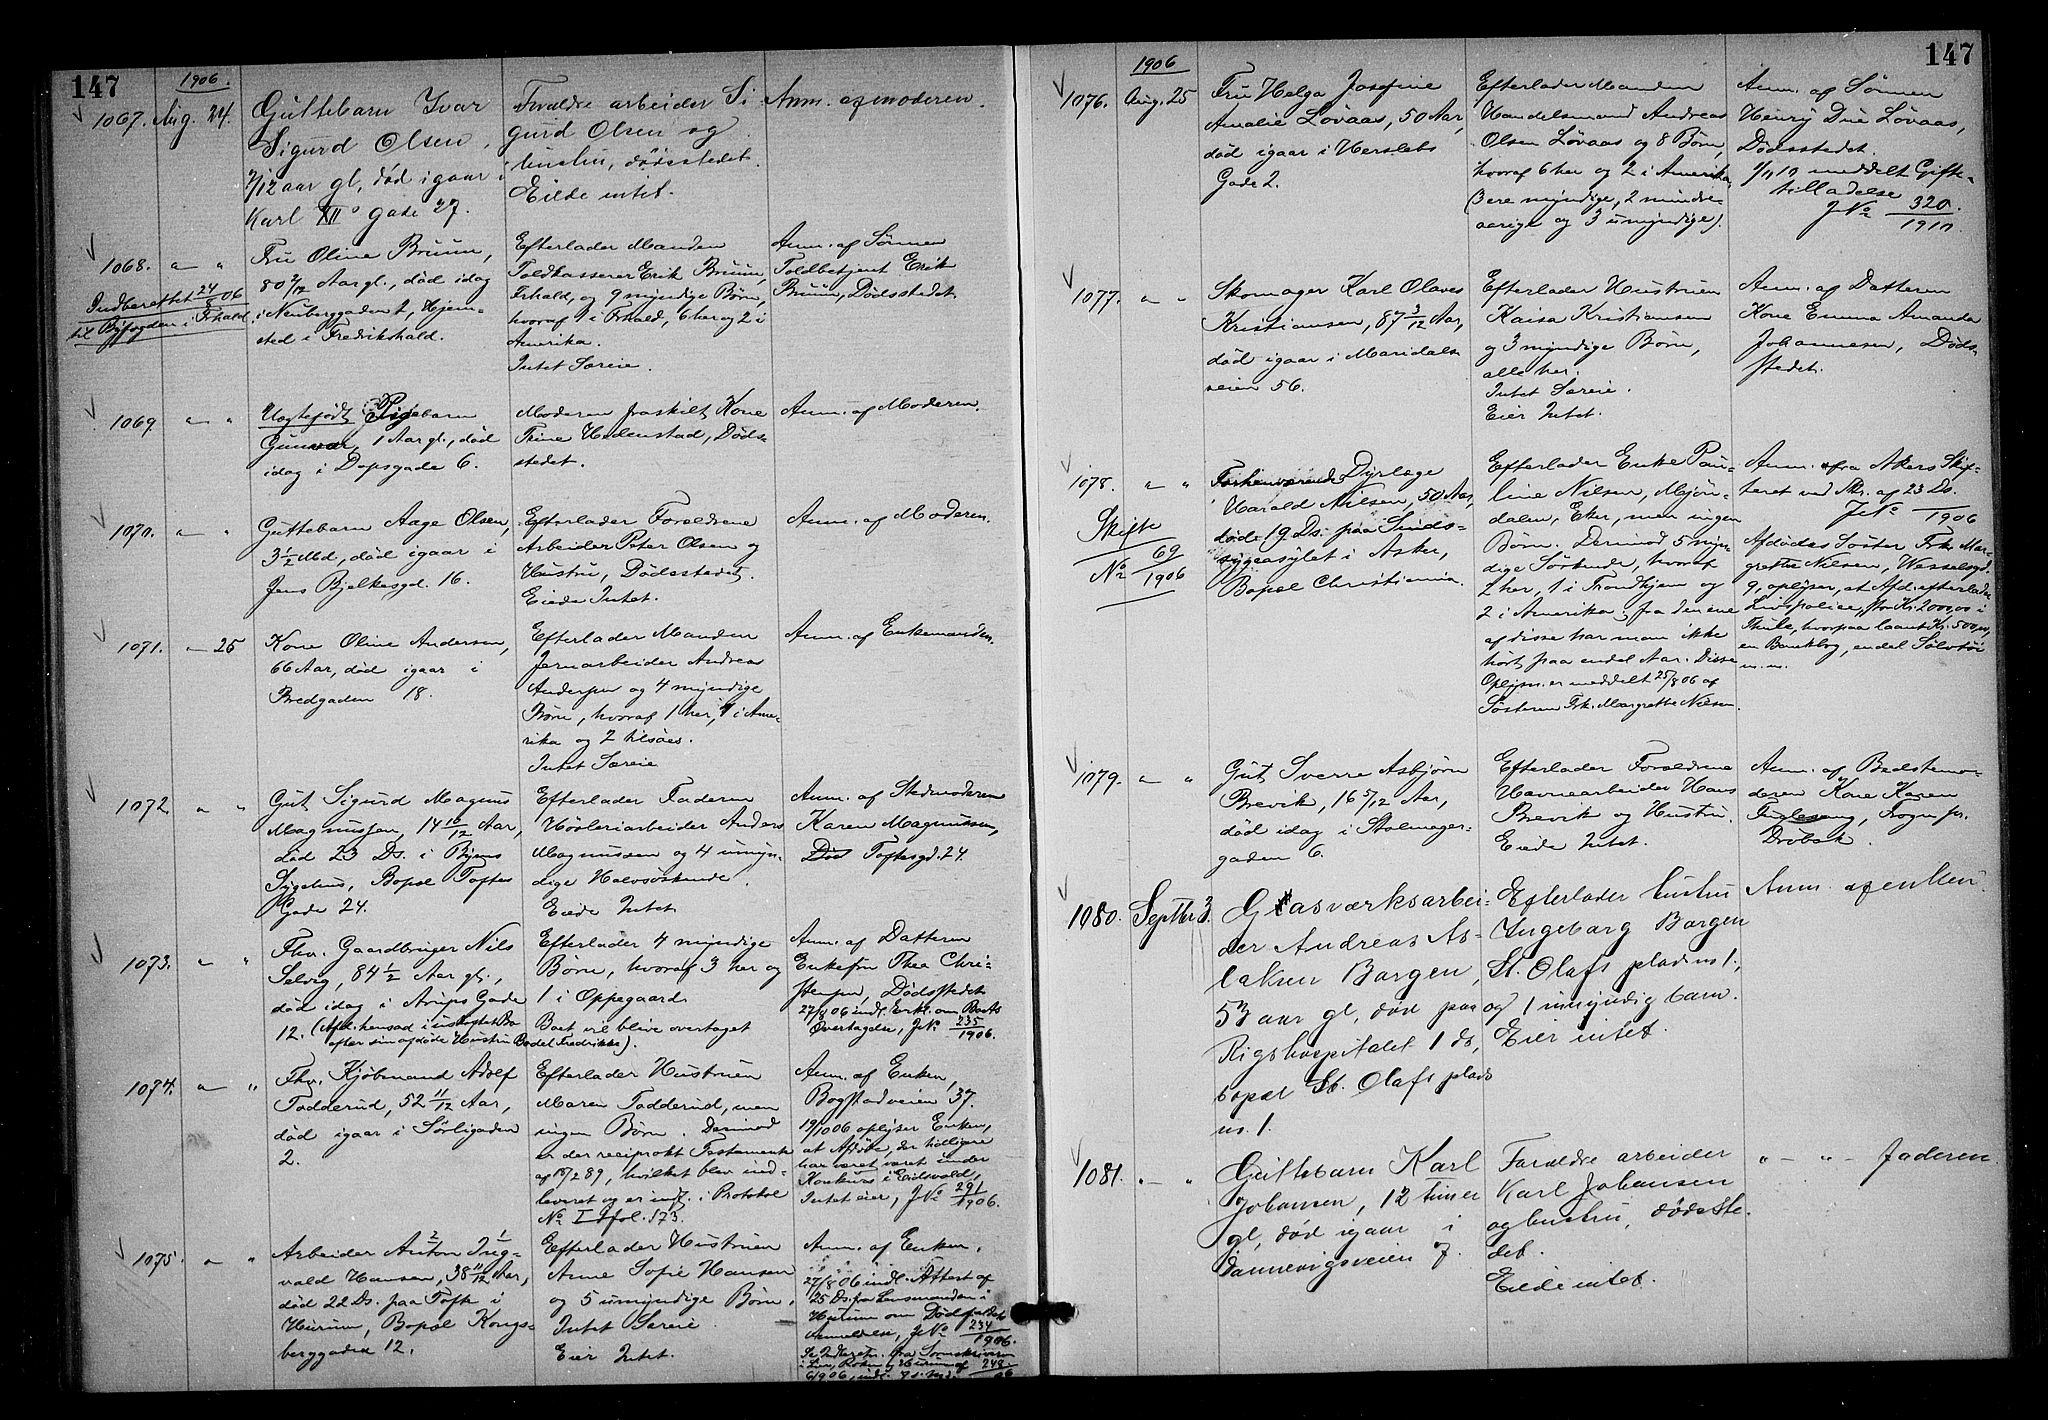 147
1906.
1067. Aug. 24.
Guttebarn Ivar
Sigurd Olsen,
7/12 aar gl., død igaar i
Karl XII's gade 27.
Forældre arbeider Si
gurd Olsen og
hustru, dødsstedet.
Eiede intet.
Anm. af moderen.
1068. " "
Indberettet 24/8 06
til Byfogden i Frhald
Fru Oline Bruun,
80 2/12 Aar gl., død idag
i Neuberggaden 1, Hjem-
sted i Fredrikshald.
Efterlader Manden
Toldkasserer Erik Bruun,
Frhald, og 9 myndige Børn,
hvoraf 1 i Frhald, 6 her og 2 i
Amerika.
Intet Særeie.
Anm. af Sønnen
Toldbetjent Erik
Bruun, Dødsstedet.
1069 " "
Uægtefødt Pigebarn
Gunvor, 1 Aar gl., død
idag i Dopsgade 6.
Moderen fraskilt Kone
Trine Hedenstad, Døds-
stedet.
Anm. af Moderen.
1070. " "
Guttebarn Aage Olsen,
3 1/2 Md, død igaar i
Jens Bjelkesgd. 16.
Efterlader Forældrene
Arbeider Peter Olsen og
Hustru, Dødsstedet.
Eiede Intet.
Anm. af Moderen.
1071. " 25
Kone Oline Andersen,
66 Aar, død igaar i
Bredgaden 18.
Efterlader Manden
Jernarbeider Andreas
Andersen og 4 myndige
Børn, hvoraf 1 her, 1 i Ame-
rika og 2 tilsøes.
Intet Særeie
Anm. af Enkemanden.
1072. " "
Gut Sigurd Magnus
Magnussen, 14 10/12 Aar,
død 23 Ds. i Byens
Sygehus, Bopæl Toftes
Gade 24.
Efterlader Faderen
Høvleriarbeider Anders
Magnussen og 4 umyn-
dige Halvsøskende.
Eiede Intet
Anm. af Stedmoderen
Karen Magnussen,
Toftesgd. 24.
1073. " "
Fhv. Gaardbruger Nils
Selvig, 84 1/2 Aar gl.,
død idag i Arups Gade
12. (Afd. hensad i uskiftet Bo
efter sin afdøde Hustru Bodel Fredrikke).
Efterlader 4 myndige
Børn, hvoraf 3 her og
1 i Oppegaard
Boet vil blive overtaget
Anm. af Datteren
Enkefru Thea Chri-
stensen, Dødsstedet
27/8 06 indl. Erkl. om Boets
Overtagelse, J.No 235/1906.
1074. " "
Fhv. Kjøbmand Adolf
Todderud, 52 11/12 Aar,
død igaar i Sørligaden
2.
Efterlader Hustruen
Maren Todderud, men
ingen Børn. Derimod
er der reciprokt Testamente
af 18/2 89, hvilket blev ind-
leveret og er indf. i Protokol
No I fol. 173.
Anm. af Enken,
Bogstadveien 37.
19/10 06 oplyser Enken,
at Afdøde, der tidligere
har været under
Konkurs i Eidsvold,
Intet eier, J.No 291/1906.
1075. " "
Arbeider Anton Ing-
vald Hansen, 38 11/12 Aar,
død 22 Ds. paa Tofte i
Hurum, Bopæl Kongs-
berggaden 12.
Efterlader Hustruen
Anne Sofie Hansen
og 5 umyndige Børn.
Intet Særeie.
Eier Intet.
Anm. af Enken.
27/8 06 indl. Attest af
25 Ds. fra Lensmanden i
Hurum om Dødsfaldets
Anmeldelse, J.No 234/1906.
147
1906
1076. Aug. 25
Fru Helga Josefine
Amalie Løvaas, 50 Aar,
død igaar i Herslebs
Gade 2.
Efterlader Manden
Handelsmand Andreas
Olsen Løvaas og 8 Børn,
hvoraf 6 her og 2 i Amerika,
(3 ere myndige, 2 mindre-
aarige og 3 umyndige).
Anm. af Sønnen
Henry Due Løvaas,
Dødsstedet.
1/11 10 meddelt Gifte-
tilladelse
J.No 320/1910.
1077. " "
Skomager Karl Olaves
Kristiansen, 87 3/12 Aar,
død igaar i Maridals-
veien 56.
Efterlader Hustruen
Kaisa Kristiansen
og 3 myndige Børn,
alle her.
Intet Særeie.
Eier Intet.
Anm. af Datteren
Kone Emma Amanda
Johannesen, Døds-
stedet.
1078. " "
Skifte
No 69/1906
Forhenværende Dyrlæge
Harald Nilsen, 50 Aar,
død 19 Ds. paa Sinds-
sygeasylet i Asker,
Bopæl Christiania.
Efterlader Enke Pau-
line Nilsen, Mjøn-
dalen, Eker, men ingen
Børn. Derimod 5 myn-
dige Søskende, hvoraf
2 her, 1 i Trondhjem og
2 i Amerika; fra den ene
af disse har man ikke
hørt paa endel Aar. Disse
Oplysn. er meddelt 25/8 06 af
Søsteren Frk. Margrethe Nilsen.
Anm. fra Akers Skif-
teret ved Skr. af 23 Ds.
J.No /1906
Afdødes Søster Frk. Mar-
grethe Nilsen, Wesselsgd.
9, oplyser, at Afd. efterlader
Livspolice, stor Kr. 2000,00 i
Thule, hvorpaa laant Kr. 500,00,
en Bankbog, endel Sølvtøi
m.m.
1079. " "
Gut Sverre Asbjørn
Brevik, 16 5/12 Aar,
død idag i Stolmager-
gaden 6.
Efterlader Forældrene
Havnearbeider Hans
Brevik og Hustru.
Eiede Intet.
Anm. af Bedstemo-
deren Kone Karen
Fuglesang, Frogn pr.
Drøbak.
1080. Septbr 3.
Gasværksarbei-
der Andreas As-
laksen Bargen,
53 aar gl, død paa
Rigshospitalet 1 ds,
bopæl St. Olafs plads
no. 1.
Efterlader hustru
Ingeborg Bargen
St. Olafs plads no 1.,
og 1 umyndig barn.
Eier intet.
Anm. af enken.
1081. " "
Guttebarn Karl
Johansen, 12 timer
gl, død igaar i
Dannevigsveien 9.
Forældre arbeider
Karl Johansen
og hustru, dødsste-
det.
Eiede intet.
" - " - faderen